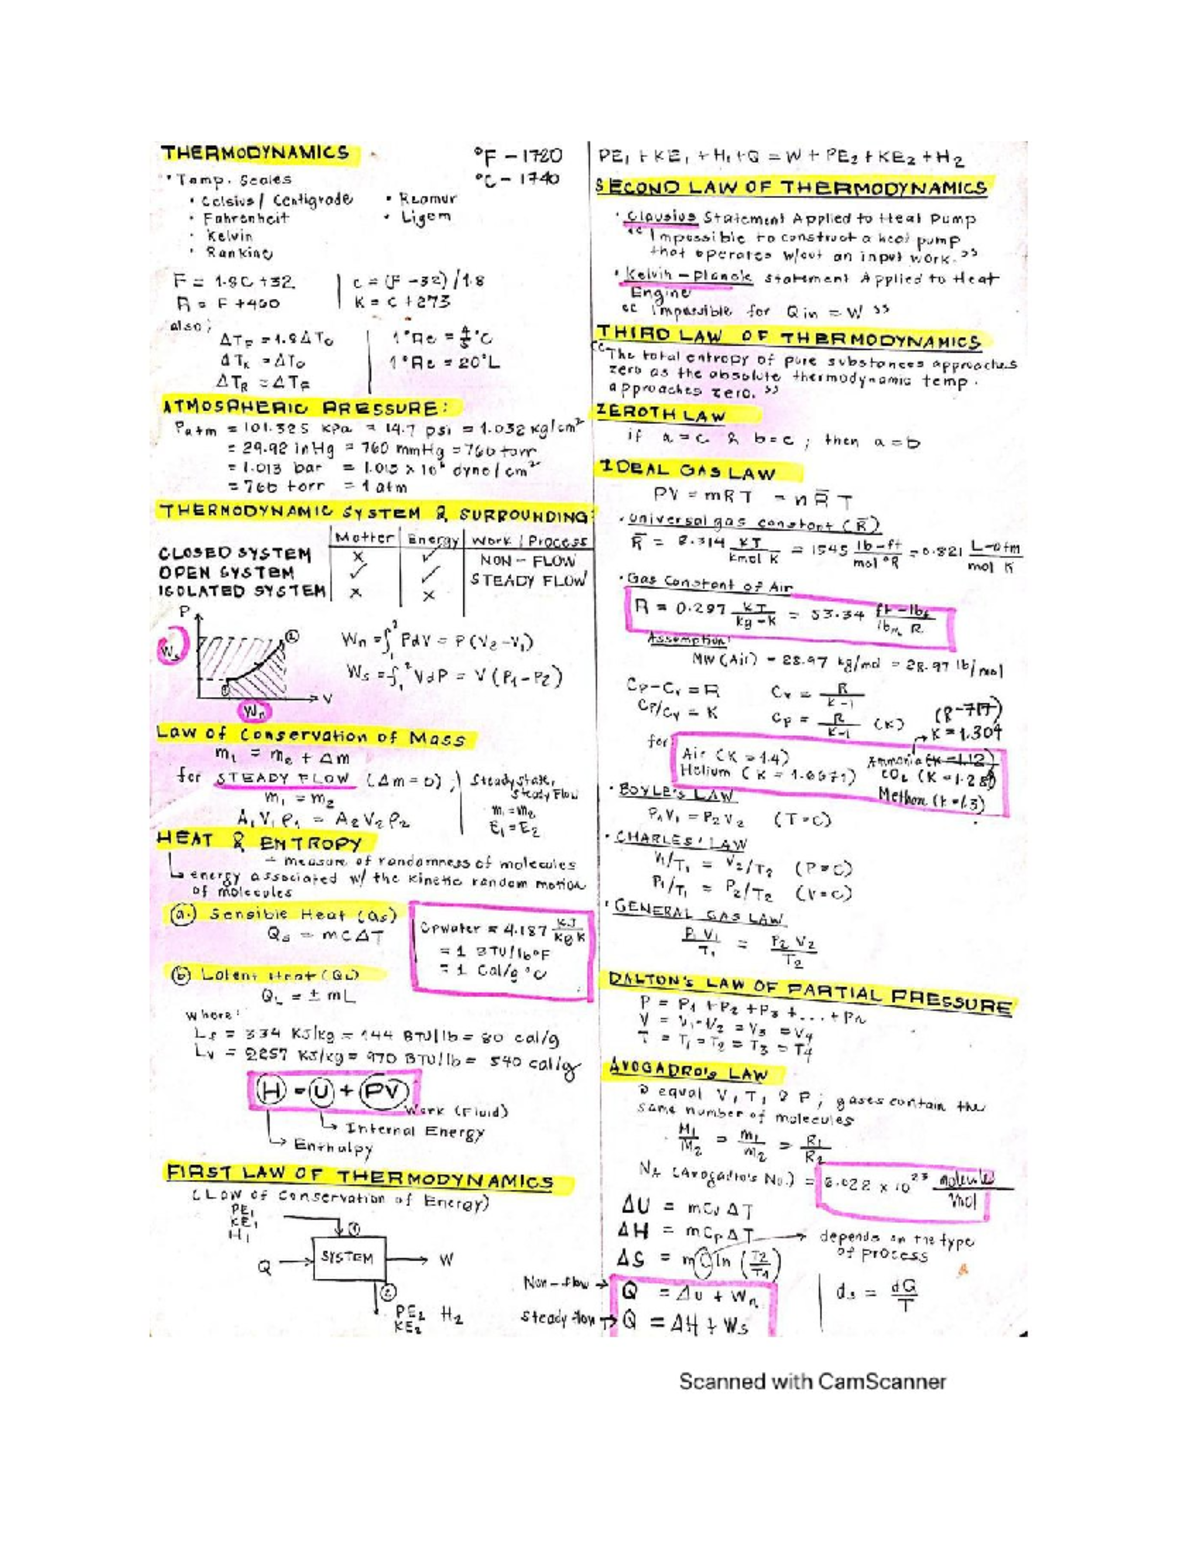 THERMODYNAMICS
°F - 1720
°C - 1740
• Temp. Scales
• Celsius / Centigrade
• Fahrenheit
• Kelvin
• Rankine
• Reamur
• Ligem
F = 1.8C + 32
R = F + 460
C = (F - 32) / 1.8
K = C + 273
also;
ΔTF = 1.8ΔTC
ΔTK = ΔTC
ΔTR = ΔTF
1°Re = 4/5 °C
1°Re = 20°L
ATMOSPHERIC PRESSURE:
Patm = 101.325 kPa = 14.7 psi = 1.032 kg/cm²
= 29.92 inHg = 760 mmHg = 760 torr
= 1.013 bar = 1.013 x 10⁶ dyne/cm²
= 760 torr = 1 atm
THERMODYNAMIC SYSTEM & SURROUNDING:
Matter | Energy | Work / Process
CLOSED SYSTEM x ✓ NON - FLOW
OPEN SYSTEM ✓ ✓ STEADY FLOW
ISOLATED SYSTEM x x
P
Ws
①
②
V
Wn
Wn = ∫₁² PdV = P (V2 - V1)
Ws = -∫₁² VdP = V (P1 - P2)
Law of Conservation of Mass
m1 = m2 + Δm
for STEADY FLOW (Δm = 0);
m1 = m2
A1V1ρ1 = A2V2ρ2
Steady State,
Steady Flow
m1 = m2
E1 = E2
HEAT & ENTROPY
→ measure of randomness of molecules
↳ energy associated w/ the kinetic random motion
of molecules
(a.) Sensible Heat (Qs)
Qs = mCΔT
Cpwater = 4.187 KJ/Kg K
= 1 BTU/lb°F
= 1 Cal/g °C
(b) Latent Heat (QL)
QL = ± mL
where:
Ls = 334 KJ/kg = 144 BTU/lb = 80 cal/g
Lv = 2257 KJ/kg = 970 BTU/lb = 540 cal/g
H = U + PV
Work (Fluid)
↳ Internal Energy
↳ Enthalpy
FIRST LAW OF THERMODYNAMICS
(Law of Conservation of Energy)
PE1
KE1
H1
①
Q → SYSTEM → W
②
PE2 H2
KE2
PE1 + KE1 + H1 + Q = W + PE2 + KE2 + H2
SECOND LAW OF THERMODYNAMICS
• Clausius Statement Applied to Heat Pump
"Impossible to construct a heat pump
that operates w/out an input work."
• Kelvin - Planck statement Applied to Heat
Engine
"Impossible for Qin = W"
THIRD LAW OF THERMODYNAMICS
"The total entropy of pure substances approaches
zero as the absolute thermodynamic temp.
approaches zero."
ZEROTH LAW
if a = c & b = c ; then a = b
IDEAL GAS LAW
PV = mRT = nR̄T
• Universal gas constant (R̄)
R̄ = 8.314 KJ/kmol K = 1545 lb-ft/mol°R = 0.821 L-atm/mol K
• Gas Constant of Air
R = 0.287 KJ/kg-K = 53.34 ft-lbf/lbm R
Assumption:
MW (Air) = 28.97 kg/mol = 28.97 lb/mol
Cp - Cv = R
Cp/Cv = K
Cv = R/K-1
Cp = R/K-1 (K)
K = 1.304
for
Air (K = 1.4)
Helium (K = 1.6671)
Ammonia (K = 1.12)
CO2 (K = 1.288)
Methane (K = 1.3)
• BOYLE'S LAW
P1V1 = P2V2 (T = C)
• CHARLES' LAW
V1/T1 = V2/T2 (P = C)
P1/T1 = P2/T2 (V = C)
• GENERAL GAS LAW
P1V1/T1 = P2V2/T2
DALTON'S LAW OF PARTIAL PRESSURE
P = P1 + P2 + P3 + . . . + Pn
V = V1 = V2 = V3 = V4
T = T1 = T2 = T3 = T4
AVOGADRO'S LAW
equal V, T, & P ; gases contain the
same number of molecules
M1/M2 = m1/m2 = R1/R2
NA (Avogadro's No.) = 6.022 x 10²³ molecules/mol
ΔU = mCvΔT
ΔH = mCpΔT
ΔS = mC ln (T2/T1)
→ depends on the type
of process
Non-flow → Q = ΔU + Wn
Steady flow → Q = ΔH + Ws
ds = dQ/T
Scanned with CamScanner